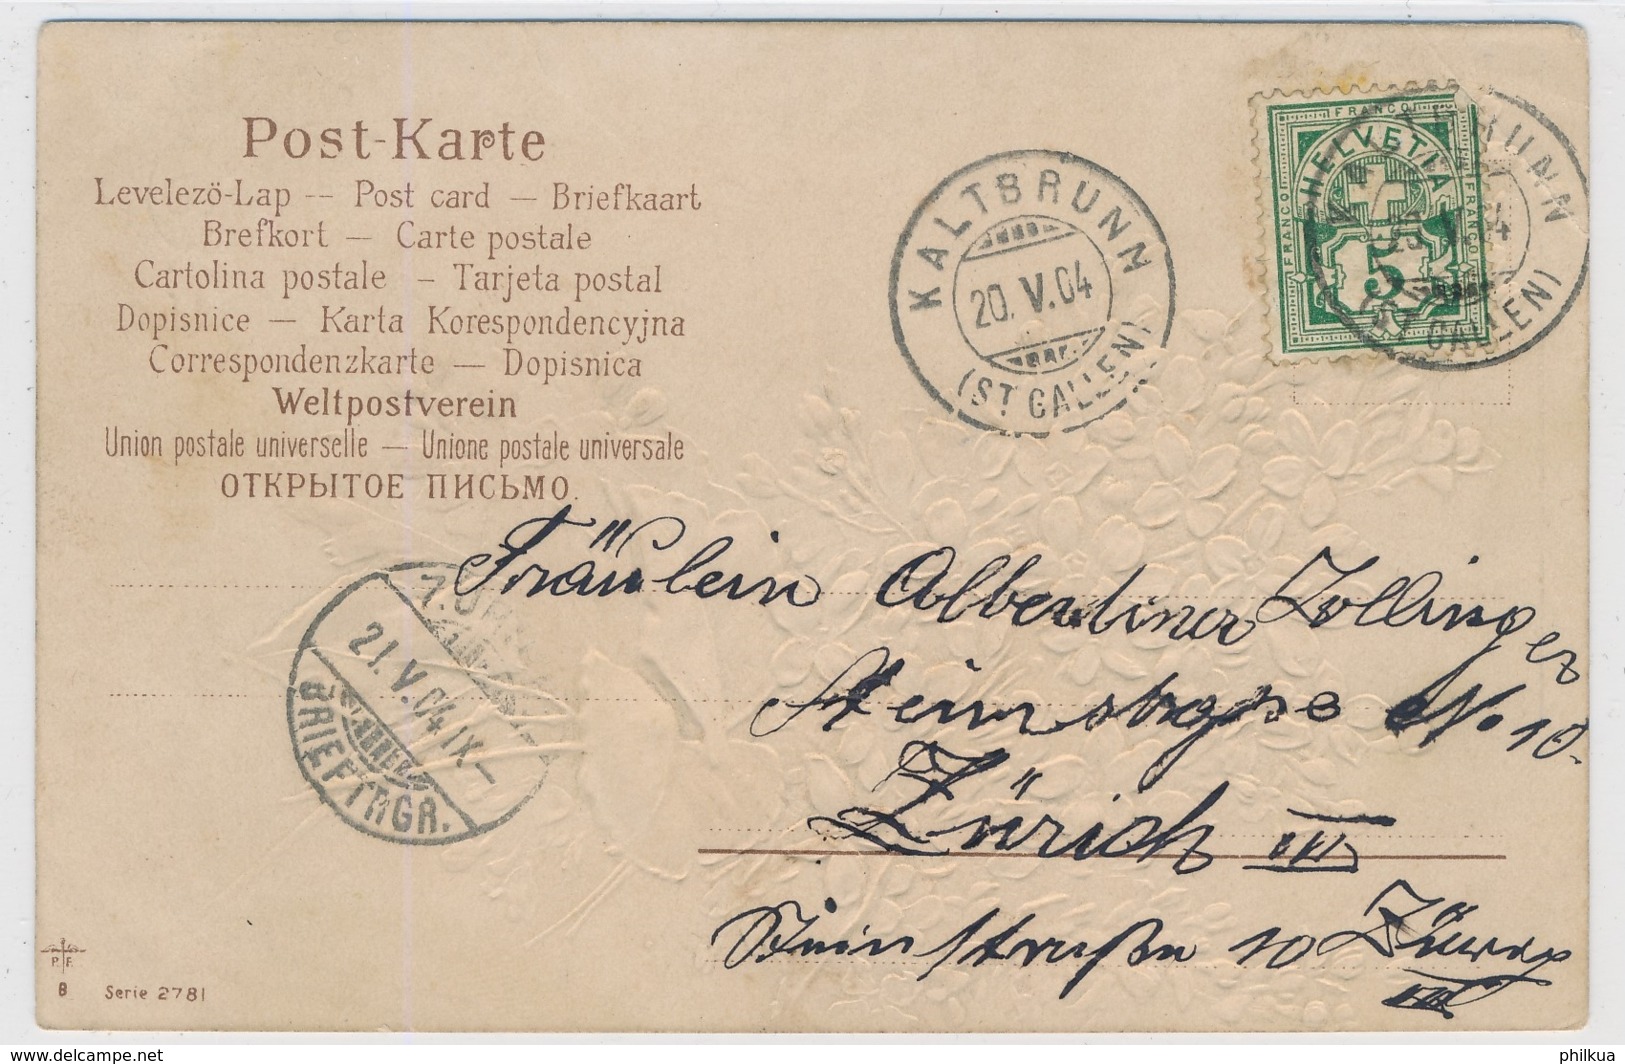 Post-Karte
Levelezö-Lap -- Post card — Briefkaart
Brefkort — Carte postale
Cartolina postale – Tarjeta postal
Dopisnice — Karta Korespondencyjna
Correspondenzkarte — Dopisnica
Weltpostverein
Union postale universelle — Unione postale universale
ОТКРЫТОЕ ПИСЬМО.
KALTBRUNN
20.V.04
(ST. GALLEN)
FRANCO
HELVETIA
FRANCO
FRANCO
5
(ST. GALLEN)
21.V.04 IX–
BRIEFTRGR.
Fräulein Albertina Zollinger
Steinstrasse No 10.
Zürich III
Steinstraße 10 Zürich
III
P. F.
8 Serie 2781
https://www.delcampe.net
philkua